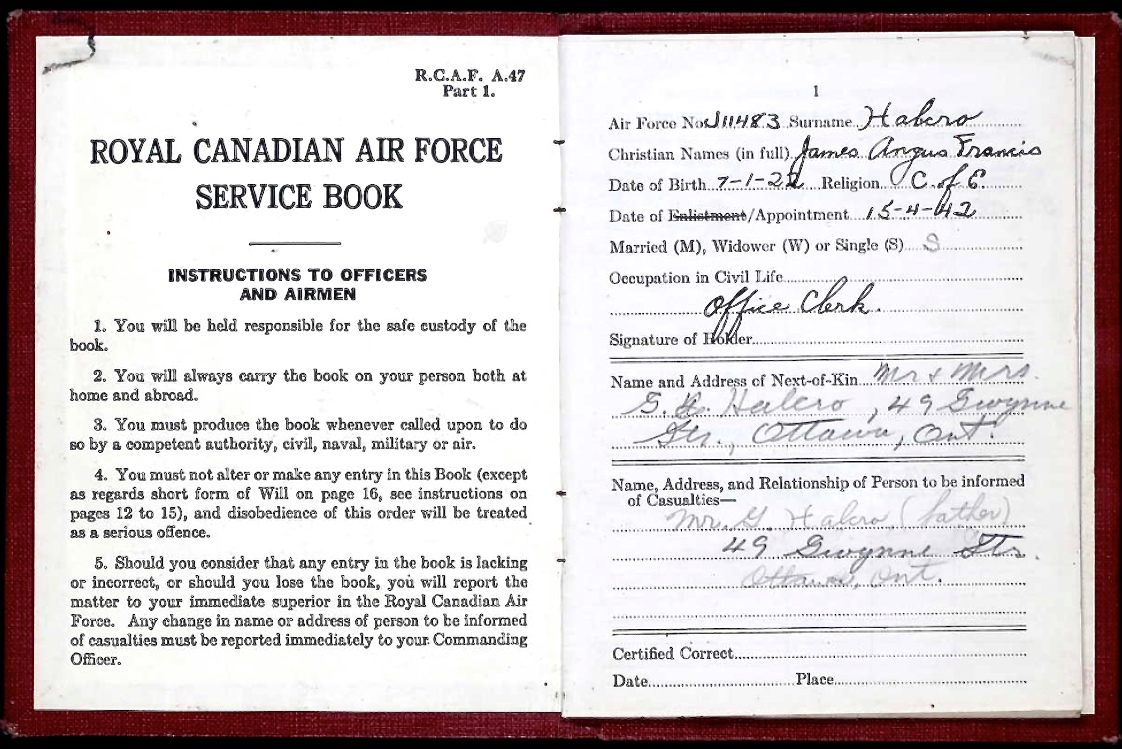 R.C.A.F. A.47
Part 1.
ROYAL CANADIAN AIR FORCE
SERVICE BOOK
INSTRUCTIONS TO OFFICERS
AND AIRMEN
1. You will be held responsible for the safe custody of the
book.
2. You will always carry the book on your person both at
home and abroad.
3. You must produce the book whenever called upon to do
so by a competent authority, civil, naval, military or air.
4. You must not alter or make any entry in this Book (except
as regards short form of Will on page 16, see instructions on
pages 12 to 15), and disobedience of this order will be treated
as a serious offence.
5. Should you consider that any entry in the book is lacking
or incorrect, or should you lose the book, you will report the
matter to your immediate superior in the Royal Canadian Air
Force. Any change in name or address of person to be informed
of casualties must be reported immediately to your Commanding
Officer.
1
Air Force No. J11483 Surname Halcro
Christian Names (in full) James Angus Francis
Date of Birth 7-1-22 Religion C. of E.
Date of Enlistment/Appointment 15-4-42
Married (M), Widower (W) or Single (S) S
Occupation in Civil Life
Office Clerk.
Signature of Holder
Name and Address of Next-of-Kin Mr & Mrs.
G. Halcro, 49 Gwynne
Str., Ottawa, Ont.
Name, Address, and Relationship of Person to be informed
of Casualties—
Mr. G. Halcro, (father)
49 Gwynne Str.
Ottawa, Ont.
Certified Correct
Date Place